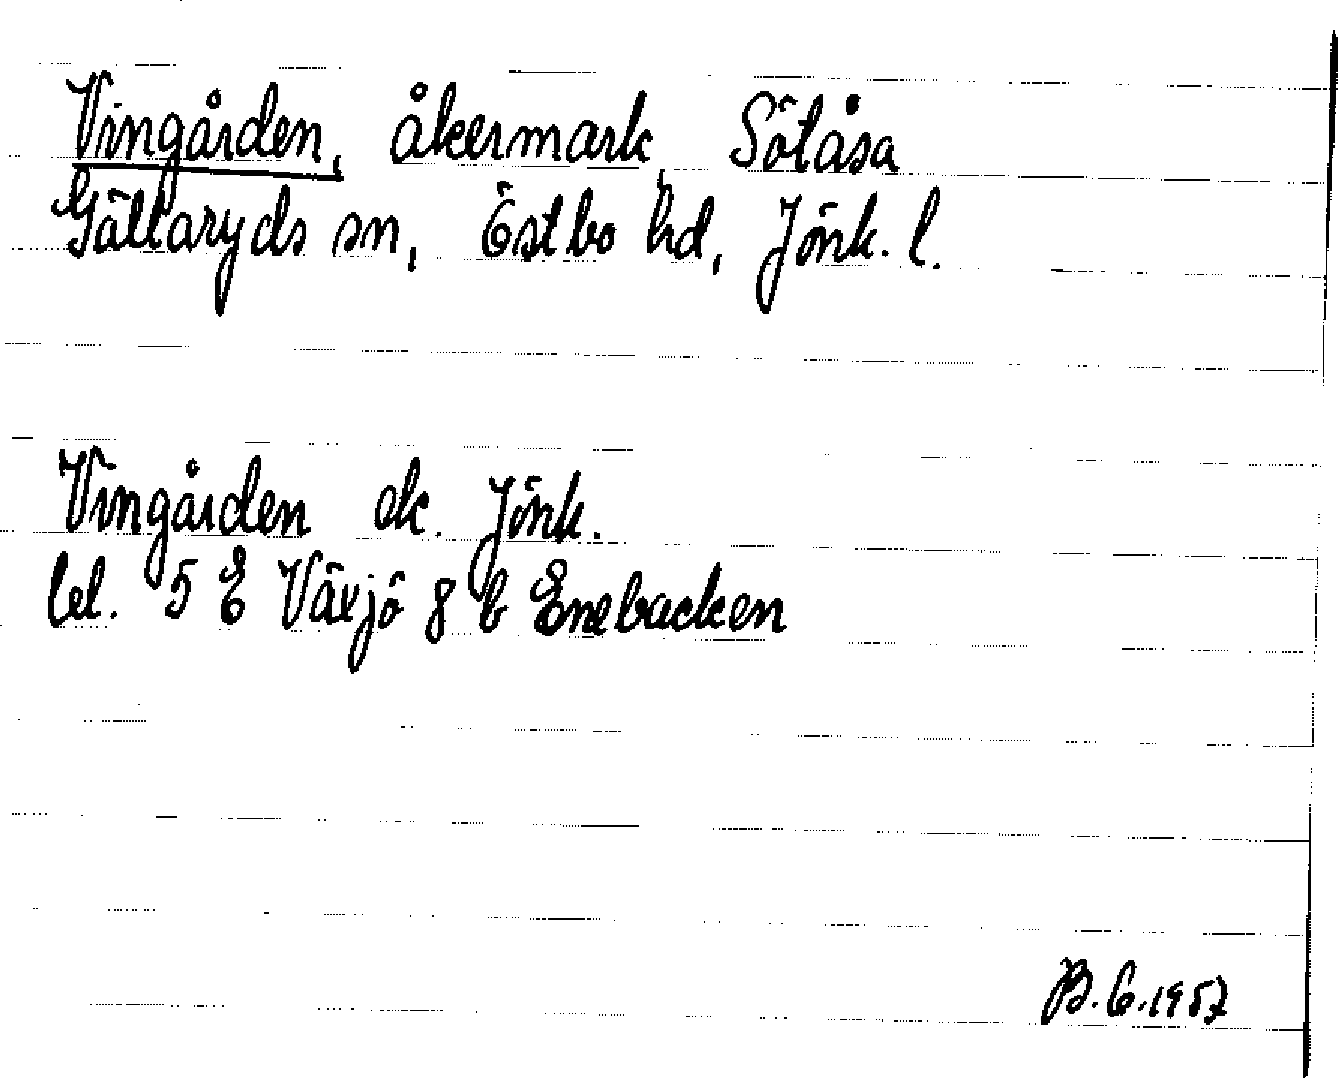 Vingården, åkermark, Sötåsa
Gällaryds sn, Östbo hd, Jönk. l.
Vingården ek. Jönk.
bel. 5 E Växjö 8 b Enebacken
B. E. 1957